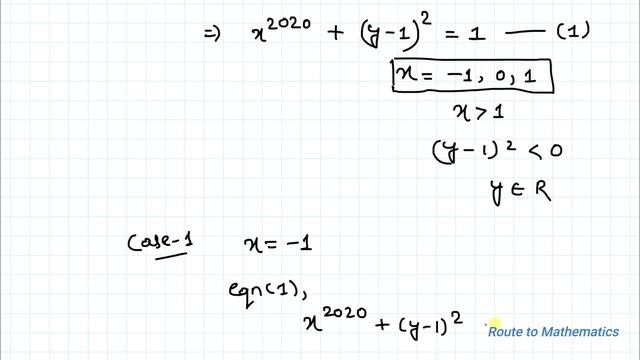 ⇒ x²⁰²⁰ + (y-1)² = 1 —— (1)
x = -1, 0, 1
x > 1
(y-1)² < 0
y ∈ R
Case-1 x = -1
eqn(1),
x²⁰²⁰ + (y-1)²
Route to Mathematics